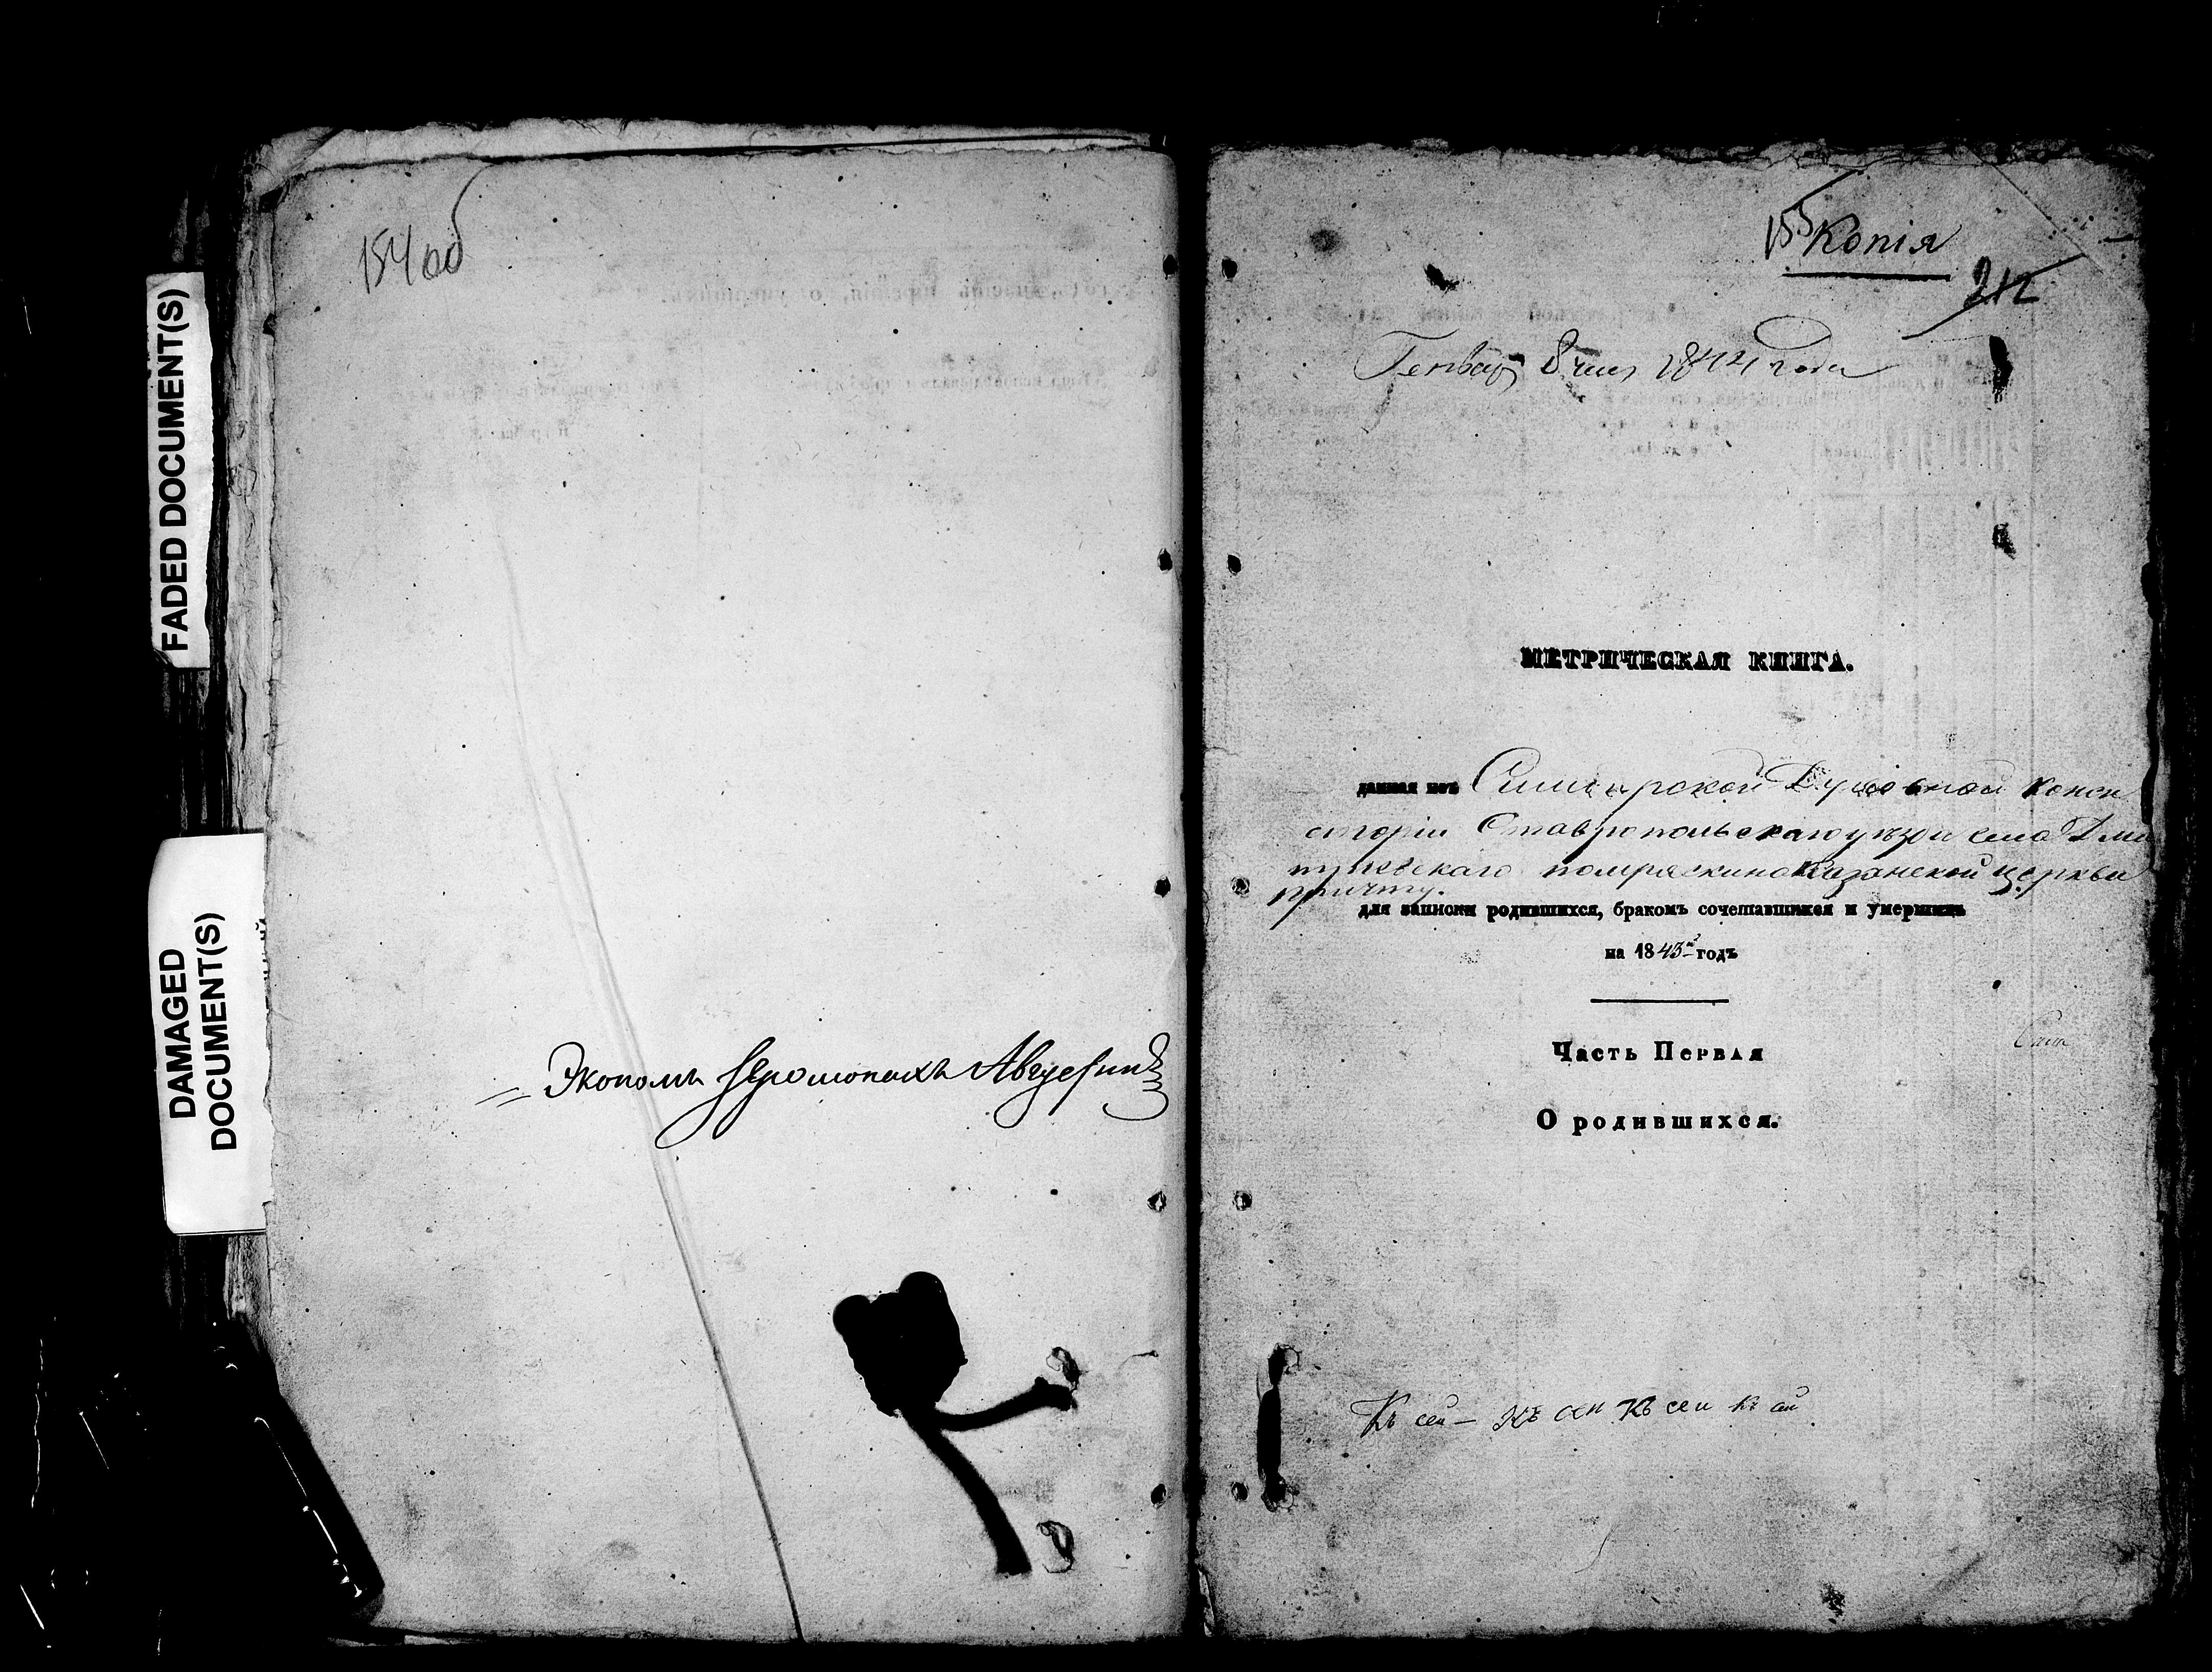 FADED DOCUMENT(S)
DAMAGED
DOCUMENT(S)
154 об
Экономъ Іеромонахъ Августинъ
155
Копія
212
Генваря 8 чис. 1844 года
МЕТРИЧЕСКАЯ КНИГА.
данная изъ Симбирской Духовной Конси
сторіи Ставропольскаго уѣзда села Дми
тріевскаго Помряскино Казанской церкви
причту.
для записки родившихся, бракомъ сочетавшихся и умершихъ
на 1843й годъ
Часть Первая
О родившихся.
Къ сей – къ сей Къ сей къ сей